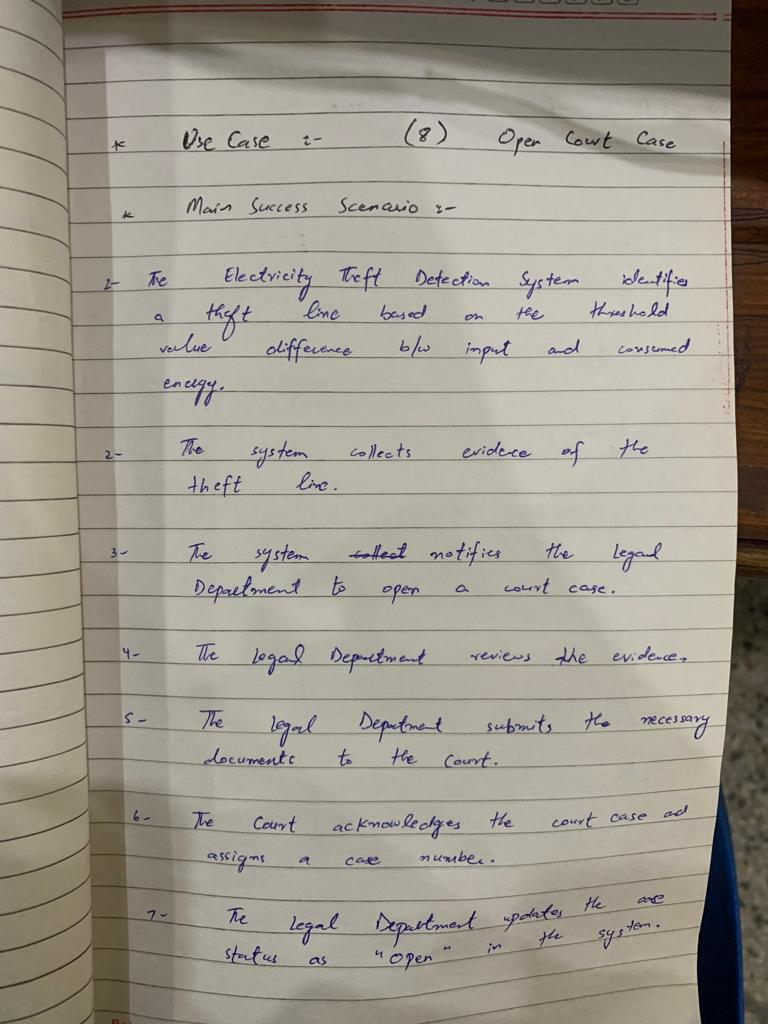 * Use Case :- (8) Open Court Case
* Main Success Scenario :-
1- The Electricity Theft Detection System identifies
a theft line based on the threshold
value difference b/w input and consumed
energy.
2- The system collects evidence of the
theft line.
3- The system collect notifies the Legal
Department to open a court case.
4- The Legal Department reviews the evidence.
5- The Legal Department submits the necessary
documents to the Court.
6- The Court acknowledges the court case ad
assigns a case number.
7- The Legal Department updates the case
status as "Open" in the system.